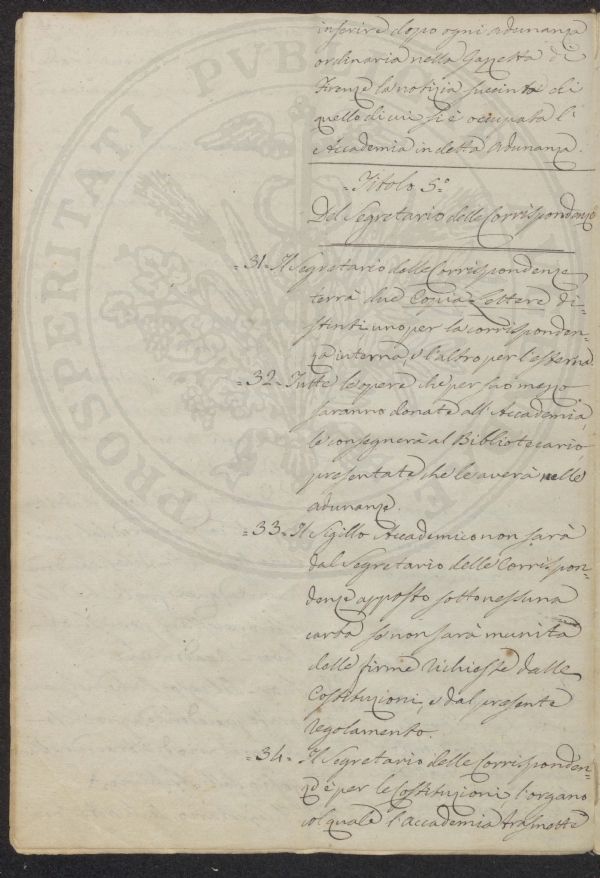 inserire dopo ogni adunanza
ordinaria nella Gazzetta di
Firenze la notizia succinta di
quello di cui si è occupata l'
Accademia in detta adunanza.
=Titolo 5.°
Del Segretario delle Corrispondenze
=31= Il Segretario delle Corrispondenze
terrà due Copia-Lettere di=
stinti uno per la corrisponden=
za interna e l'altro per l'esterna.
=32= Tutte le opere che per suo mezzo
saranno donate all'Accademia,
le consegnerà al Bibliotecario
presentate che le averà nelle
adunanze.
=33= Il Sigillo Accademico non sarà
dal Segretario delle Corrispon=
denze apposto sotto nessuna
carta se non sarà munita
delle firme richieste dalle
Costituzioni, e dal presente
regolamento.
=34= Il Segretario delle Corrisponden=
ze è per le Costituzioni l'organo
col quale l'accademia trasmette
PROSPERITATI PUB